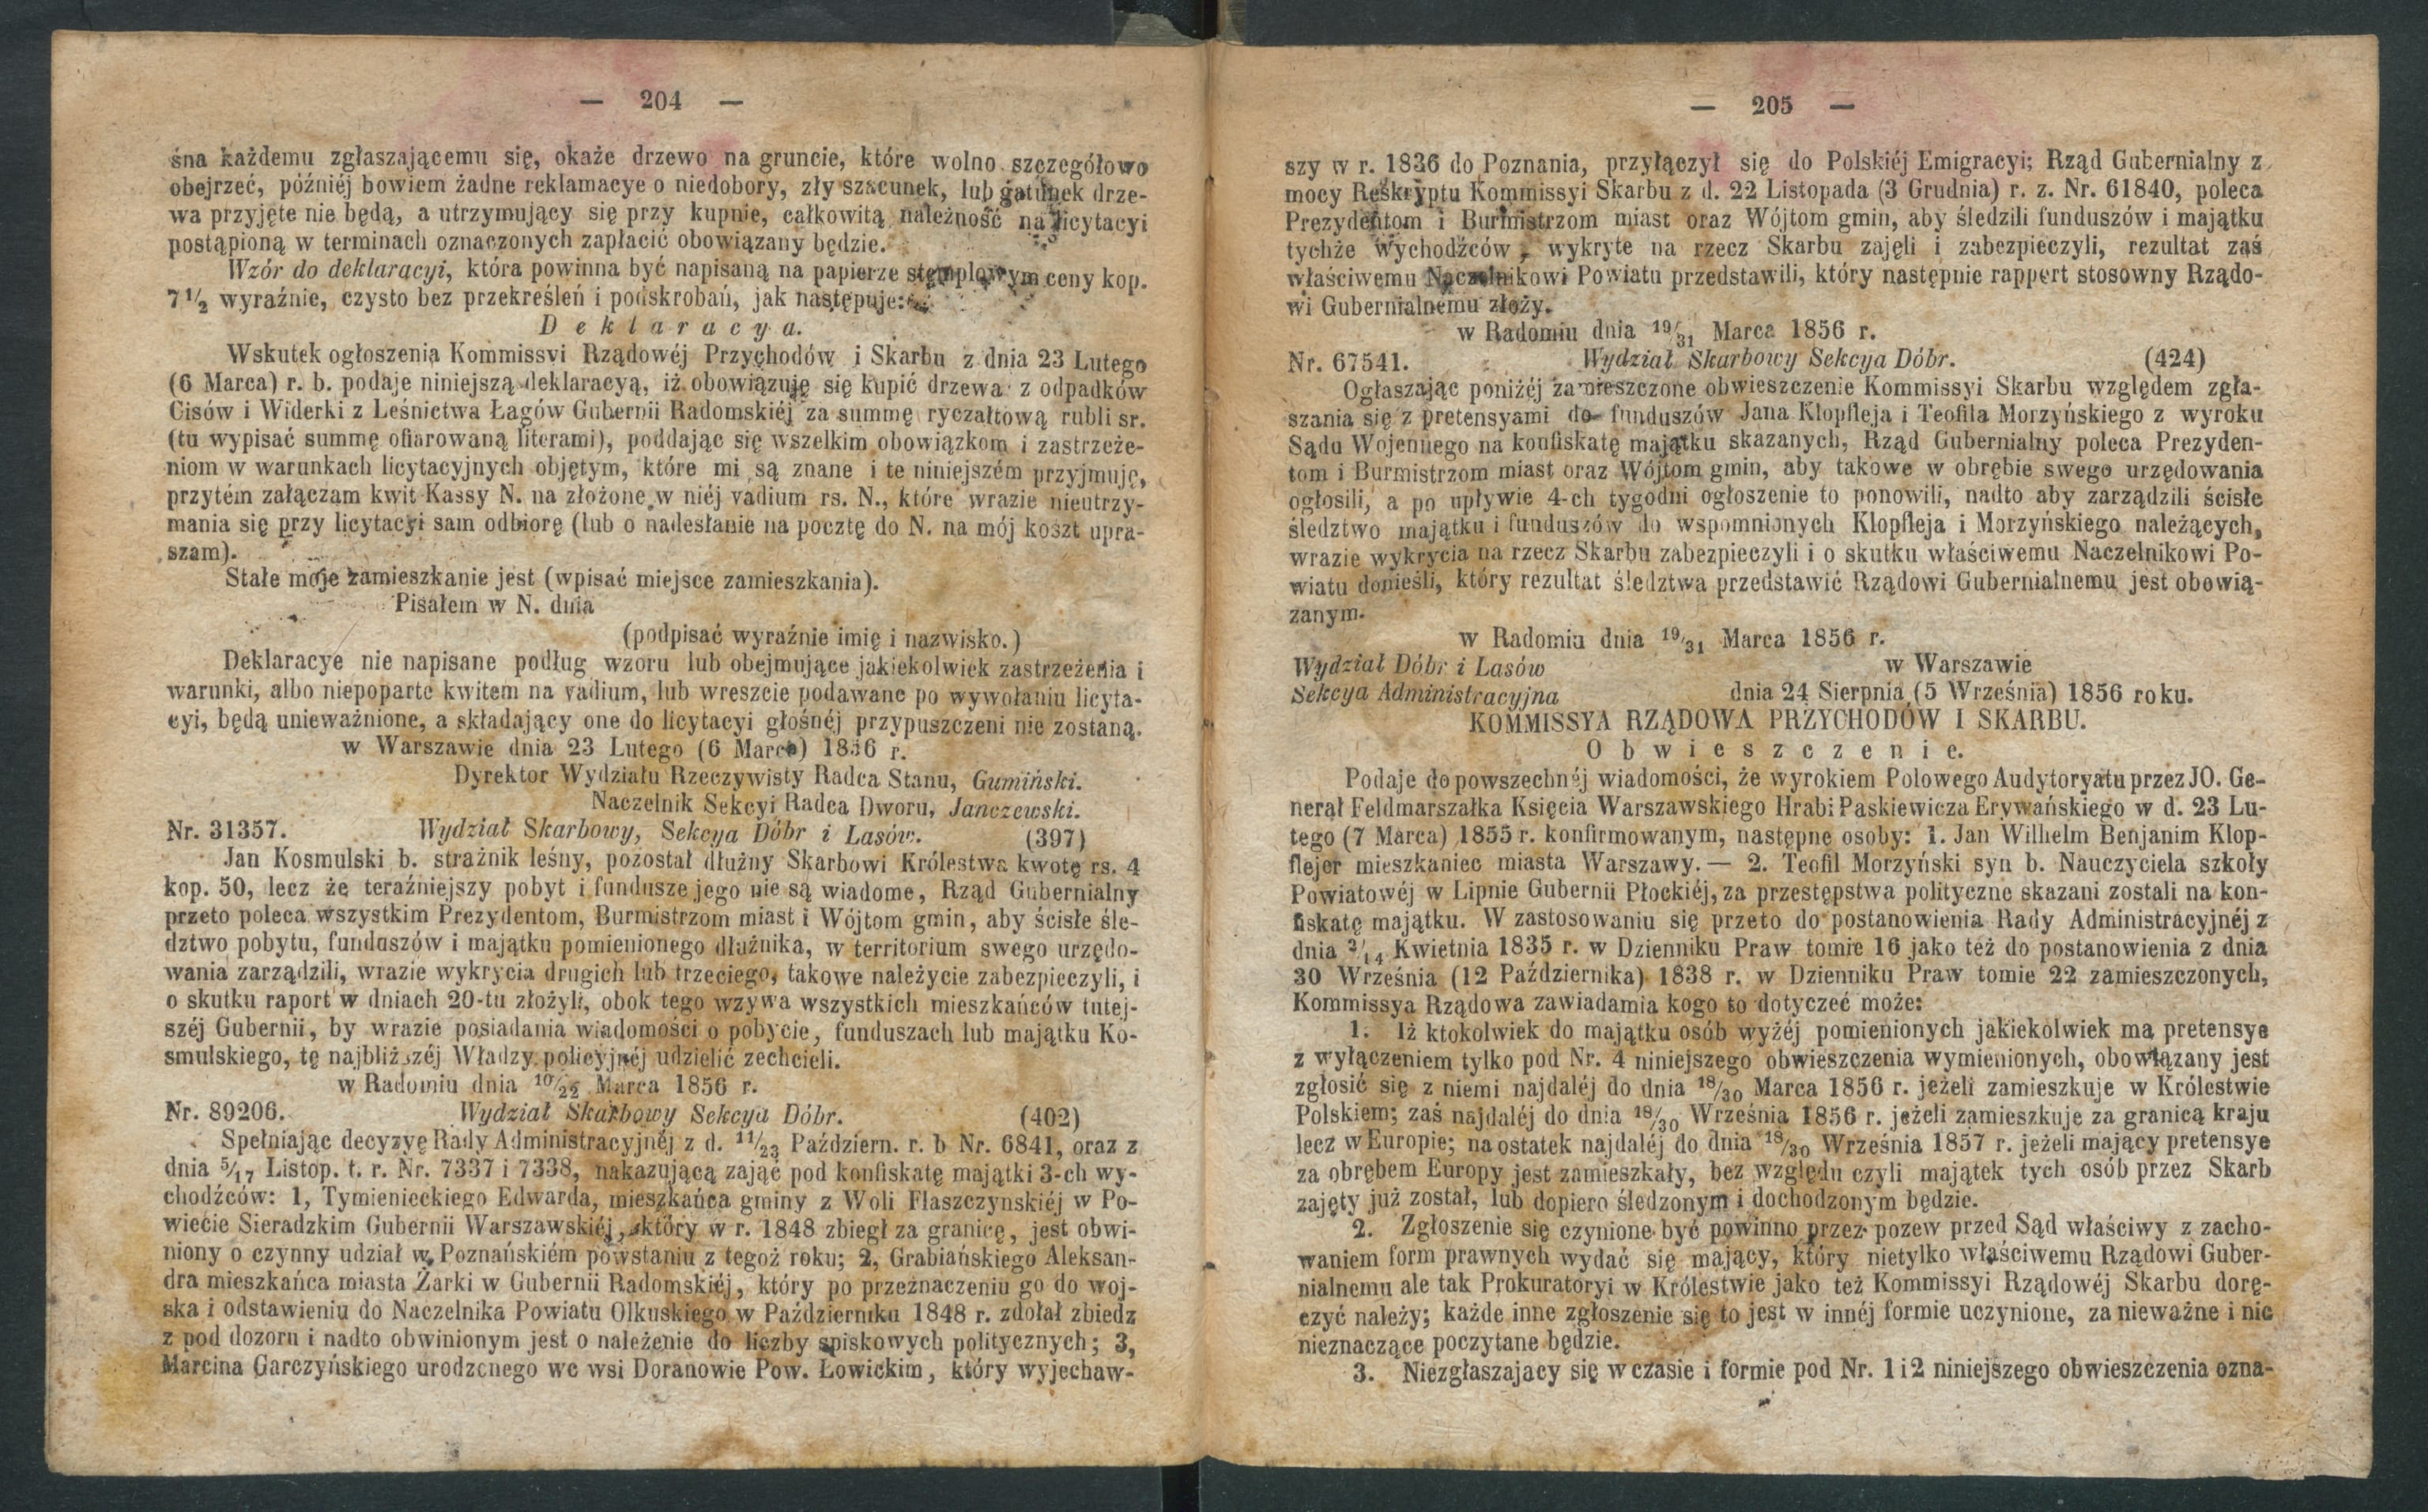 — 204 —
śna każdemu zgłaszającemu się, okaże drzewo na gruncie, które wolno szczegółowo
obejrzeć, późniéj bowiem żadne reklamacye o niedobory, zły szacunek, lub gatunek drze-
wa przyjęte nie będą, a utrzymujący się przy kupnie, całkowitą należność na licytacyi
postąpioną w terminach oznaczonych zapłacić obowiązany będzie.
Wzór do deklaracyi, która powinna być napisaną na papierze stęmplowym ceny kop.
7½ wyraźnie, czysto bez przekreśleń i podskrobań, jak następuje:
Deklaracya.
Wskutek ogłoszenia Kommissvi Rządowéj Przychodów i Skarbu z dnia 23 Lutego
(6 Marca) r. b. podaje niniejszą deklaracyą, iż obowiązuję się kupić drzewa z odpadków
Cisów i Widerki z Leśnictwa Łagów Gubernii Radomskiéj za summę ryczałtową rubli sr.
(tu wypisać summę ofiarowaną literami), poddając się wszelkim obowiązkom i zastrzeże-
niom w warunkach licytacyjnych objętym, które mi są znane i te niniejszém przyjmuję,
przytém załączam kwit Kassy N. na złożone w niéj vadium rs. N., które wrazie nieutrzy-
mania się przy licytacyi sam odbiorę (lub o nadesłanie na pocztę do N. na mój koszt upra-
szam).
Stałe moje zamieszkanie jest (wpisać miejsce zamieszkania).
Pisałem w N. dnia
(podpisać wyraźnie imię i nazwisko.)
Deklaracye nie napisane podług wzoru lub obejmujące jakiekolwiek zastrzeżenia i
warunki, albo niepoparte kwitem na vadium, lub wreszcie podawane po wywołaniu licyta-
cyi, będą unieważnione, a składający one do licytacyi głośnéj przypuszczeni nie zostaną.
w Warszawie dnia 23 Lutego (6 Marca) 1856 r.
Dyrektor Wydziału Rzeczywisty Radca Stanu, Gumiński.
Naczelnik Sekcyi Radca Dworu, Janczewski.
Nr. 31357. Wydział Skarbowy, Sekcya Dóbr i Lasów. (397)
Jan Kosmulski b. strażnik leśny, pozostał dłużny Skarbowi Królestwa kwotę rs. 4
kop. 50, lecz że teraźniejszy pobyt i fundusze jego nie są wiadome, Rząd Gubernialny
przeto poleca wszystkim Prezydentom, Burmistrzom miast i Wójtom gmin, aby ścisłe śle-
dztwo pobytu, funduszów i majątku pomienionego dłużnika, w territorium swego urzędo-
wania zarządzili, wrazie wykrycia drugich lub trzeciego, takowe należycie zabezpieczyli, i
o skutku raport w dniach 20-tu złożyli, obok tego wzywa wszystkich mieszkańców tutej-
széj Gubernii, by wrazie posiadania wiadomości o pobycie, funduszach lub majątku Ko-
smulskiego, tę najbliższéj Władzy policyjnéj udzielić zechcieli.
w Radomiu dnia 10/22 Marca 1856 r.
Nr. 89206. Wydział Skarbowy Sekcya Dóbr. (402)
Spełniając decyzyę Rady Administracyjnéj z d. 11/23 Październ. r. b Nr. 6841, oraz z
dnia 5/17 Listop. t. r. Nr. 7337 i 7338, nakazującą zająć pod konfiskatę majątki 3-ch wy-
chodźców: 1, Tymienieckiego Edwarda, mieszkańca gminy z Woli Flaszczynskiéj w Po-
wiecie Sieradzkim Gubernii Warszawskiéj, który w r. 1848 zbiegł za granicę, jest obwi-
niony o czynny udział w Poznańskiém powstaniu z tegoż roku; 2, Grabiańskiego Aleksan-
dra mieszkańca miasta Żarki w Gubernii Radomskiéj, który po przeznaczeniu go do woj-
ska i odstawieniu do Naczelnika Powiatu Olkuskiego w Październiku 1848 r. zdołał zbiedz
z pod dozoru i nadto obwinionym jest o należenie do liczby spiskowych politycznych; 3,
Marcina Garczyńskiego urodzonego we wsi Doranowie Pow. Łowickim, który wyjechaw-
— 205 —
szy w r. 1836 do Poznania, przyłączył się do Polskiéj Emigracyi; Rząd Gubernialny z
mocy Reskryptu Kommissyi Skarbu z d. 22 Listopada (3 Grudnia) r. z. Nr. 61840, poleca
Prezydentom i Burmistrzom miast oraz Wójtom gmin, aby śledzili funduszów i majątku
tychże Wychodźców, wykryte na rzecz Skarbu zajęli i zabezpieczyli, rezultat zaś
właściwemu Naczelnikowi Powiatu przedstawili, który następnie rapport stosowny Rządo-
wi Gubernialnemu złoży.
w Radomiu dnia 19/31 Marca 1856 r.
Nr. 67541. Wydział Skarbowy Sekcya Dóbr. (424)
Ogłaszając poniżéj zamieszczone obwieszczenie Kommissyi Skarbu względem zgła-
szania się z pretensyami do funduszów Jana Klopfleja i Teofila Morzyńskiego z wyroku
Sądu Wojennego na konfiskatę majątku skazanych, Rząd Gubernialny poleca Prezyden-
tom i Burmistrzom miast oraz Wójtom gmin, aby takowe w obrębie swego urzędowania
ogłosili, a po upływie 4-ch tygodni ogłoszenie to ponowili, nadto aby zarządzili ścisłe
śledztwo majątku i funduszów do wspomnionych Klopfleja i Morzyńskiego należących,
wrazie wykrycia na rzecz Skarbu zabezpieczyli i o skutku właściwemu Naczelnikowi Po-
wiatu donieśli, który rezultat śledztwa przedstawić Rządowi Gubernialnemu jest obowią-
zanym.
w Radomiu dnia 19/31 Marca 1856 r.
Wydział Dóbr i Lasów w Warszawie
Sekcya Administracyjna dnia 24 Sierpnia (5 Września) 1856 roku.
KOMMISSYA RZĄDOWA PRZYCHODÓW I SKARBU.
Obwieszczenie.
Podaje do powszechnéj wiadomości, że wyrokiem Polowego Audytoryatu przez JO. Ge-
nerał Feldmarszałka Księcia Warszawskiego Hrabi Paskiewicza Erywańskiego w d. 23 Lu-
tego (7 Marca) 1855 r. konfirmowanym, następne osoby: 1. Jan Wilhelm Benjanim Klop-
flejer mieszkaniec miasta Warszawy. — 2. Teofil Morzyński syn b. Nauczyciela szkoły
Powiatowéj w Lipnie Gubernii Płockiéj, za przestępstwa polityczne skazani zostali na kon-
fiskatę majątku. W zastosowaniu się przeto do postanowienia Rady Administracyjnéj z
dnia 2/14 Kwietnia 1835 r. w Dzienniku Praw tomie 16 jako też do postanowienia z dnia
30 Września (12 Października) 1838 r. w Dzienniku Praw tomie 22 zamieszczonych,
Kommissya Rządowa zawiadamia kogo to dotyczeć może:
1. Iż ktokolwiek do majątku osób wyżéj pomienionych jakiekolwiek ma pretensye
z wyłączeniem tylko pod Nr. 4 niniejszego obwieszczenia wymienionych, obowiązany jest
zgłosić się z niemi najdaléj do dnia 18/30 Marca 1856 r. jeżeli zamieszkuje w Królestwie
Polskiem; zaś najdaléj do dnia 18/30 Września 1856 r. jeżeli zamieszkuje za granicą kraju
lecz w Europie; na ostatek najdaléj do dnia 18/30 Września 1857 r. jeżeli mający pretensye
za obrębem Europy jest zamieszkały, bez względu czyli majątek tych osób przez Skarb
zajęty już został, lub dopiero śledzonym i dochodzonym będzie.
2. Zgłoszenie się czynione być powinno przez pozew przed Sąd właściwy z zacho-
waniem form prawnych wydać się mający, który nietylko właściwemu Rządowi Guber-
nialnemu ale tak Prokuratoryi w Królestwie jako też Kommissyi Rządowéj Skarbu dorę-
czyć należy; każde inne zgłoszenie się to jest w innéj formie uczynione, za nieważne i nic
nieznaczące poczytane będzie.
3. Niezgłaszajacy się w czasie i formie pod Nr. 1 i 2 niniejszego obwieszczenia ozna-